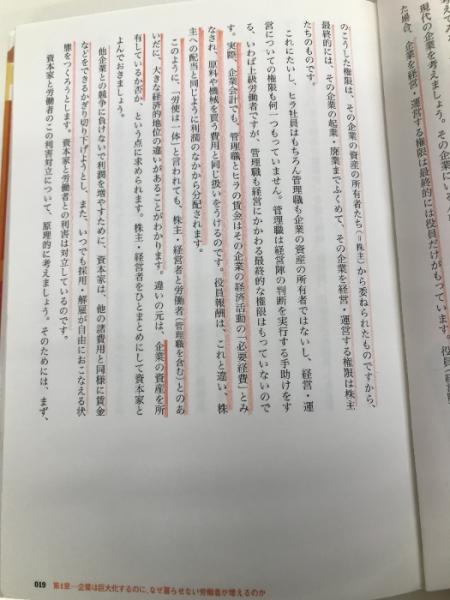 現代の企業を考えましょう。その企業にい
た場合、企業を経営・運営する権限は最終的には役員だけがもっています。役員（経
のこうした権限は、その企業の資産の所有者たち（＝株主）から委ねられたものですから、
最終的には、その企業の起業・廃業までふくめて、その企業を経営・運営する権限は株主
たちのものです。
これにたいし、ヒラ社員はもちろん管理職も企業の資産の所有者ではないし、経営・運
営についての権限も何一つもっていません。管理職は経営陣の判断を実行する手助けをす
る、いわば上級労働者ですが、管理職も経営にかかわる最終的な権限はもっていないので
す。実際、企業会計でも、管理職とヒラの賃金はその企業の経済活動の「必要経費」とみ
なされ、原料や機械を買う費用と同じ扱いをうけるのです。役員報酬は、これと違い、株
主への配当と同じように利潤のなかから分配されます。
このように、「労使は一体」と言われても、株主・経営者と労働者（管理職を含む）とのあ
いだに、大きな経済的地位の違いがあることがわかります。違いの元は、企業の資産を所
有しているか否か、という点に求められます。株主・経営者をひとまとめにして資本家と
よんでおきましょう。
他企業との競争に負けないで利潤を増やすために、資本家は、他の諸費用と同様に賃金
などをできるかぎり切り下げようとし、また、いつでも採用・解雇が自由におこなえる状
態をつくろうとします。資本家と労働者との利害は対立しているのです。
資本家と労働者のこの利害対立について、原理的に考えましょう。そのためには、まず、
019 第1章―企業は巨大化するのに、なぜ暮らせない労働者が増えるのか